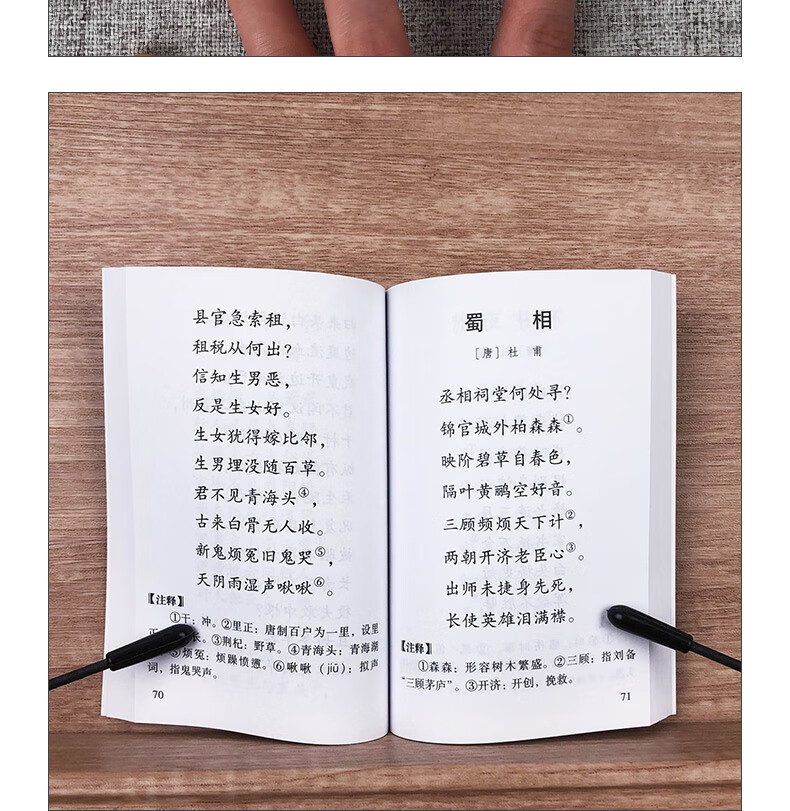 县官急索租，
租税从何出？
信知生男恶，
反是生女好。
生女犹得嫁比邻，
生男埋没随百草。
君不见青海头④，
古来白骨无人收。
新鬼烦冤旧鬼哭⑤，
天阴雨湿声啾啾⑥。
【注释】
①干：冲。②里正：唐制百户为一里，设里
正 长。③荆杞：野草。④青海头：青海湖
⑤烦冤：烦躁愤懑。⑥啾啾（jiū）：拟声
词，指鬼哭声。
70
蜀 相
［唐］杜 甫
丞相祠堂何处寻？
锦官城外柏森森①。
映阶碧草自春色，
隔叶黄鹂空好音。
三顾频烦天下计②，
两朝开济老臣心③。
出师未捷身先死，
长使英雄泪满襟。
【注释】
①森森：形容树木繁盛。②三顾：指刘备
“三顾茅庐”。③开济：开创，挽救。
71